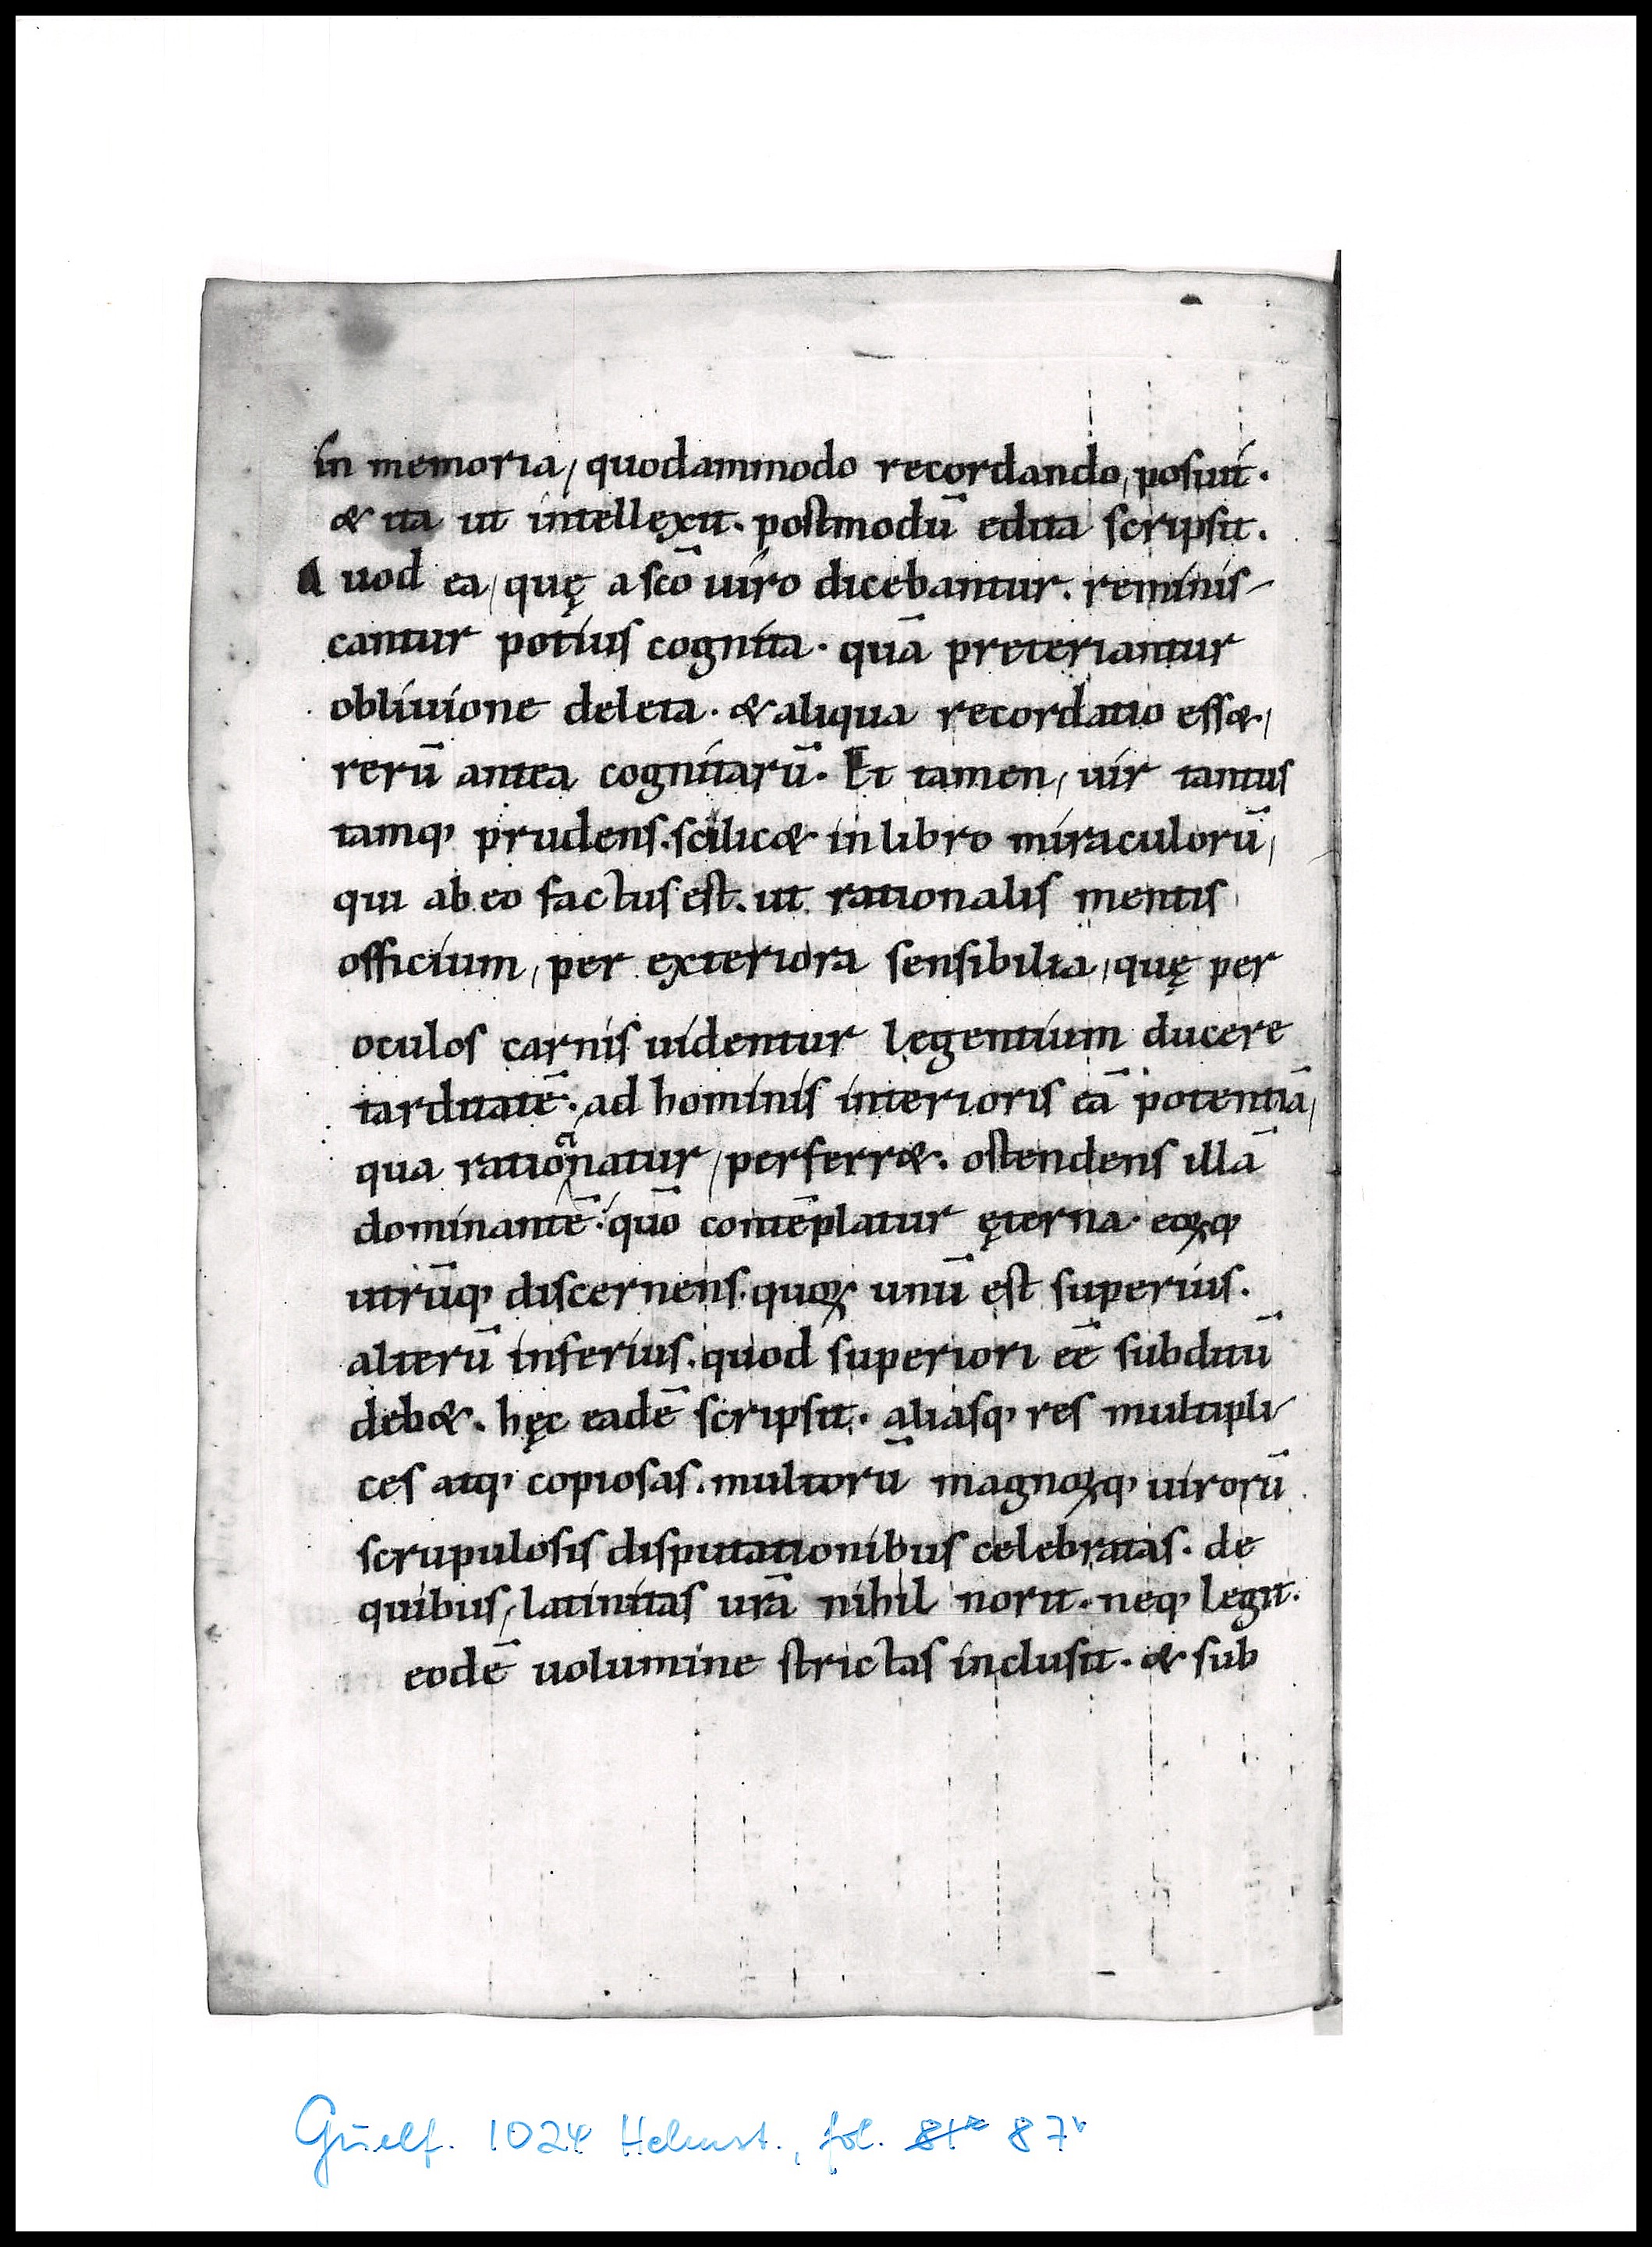 in memoria, quodammodo recordando, posuit.
& ita ut intellexit. postmodū edita scripsit.
Quod ea, quę a sc̄o uiro dicebantur. reminis-
cantur potius cognita. quā preteriantur
obliuione deleta. & aliqua recordatio ess&,
rerū antea cognitarū. Et tamen, uir tantus
tamq; prudens. scilic& in libro miraculorū,
qui ab eo factus est. ut rationalis mentis
officium, per exteriora sensibilia, quę per
oculos carnis uidentur legentium ducere
tarditatē. ad hominis interioris eā potentiā,
qua ratioc̓natur, perferr&. ostendens illā
dominantē. quō contēplatur ęterna. eoꝝq;
utrūq; discernens. quoꝝ unū est superius.
alterū inferius. quod superiori eē subditū
deb&. hęc eadē scripsit. aliasq; res multipli-
ces atq; copiosas. multorū magnoꝝq; uirorū
scrupulosis disputationibus celebratas. de
quibus, latinitas urā nihil norit. neq; legit.
eodē uolumine strictas inclusit. & sub
Guelf. 1024 Helmst., fol. 87v